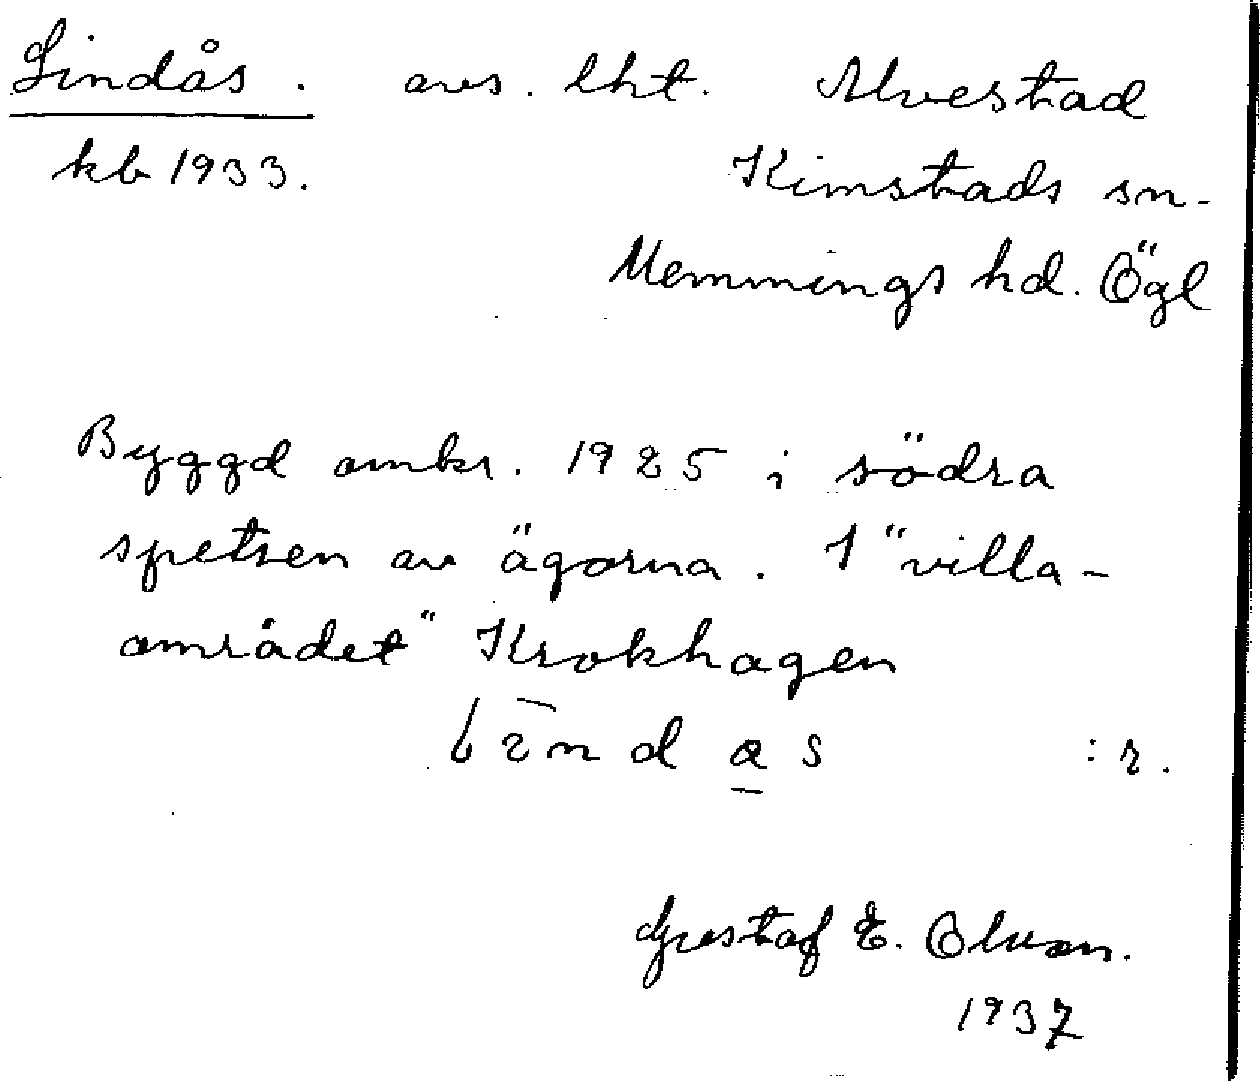 Lindås. avs. lht. Alvestad
kb 1933. Kimstads sn.
Memmings hd. Ögl
Byggd omkr. 1925 i södra
spetsen av ägorna. I "villa-
området" Krokhagen
:r.
Gustaf E. Olsson.
1937